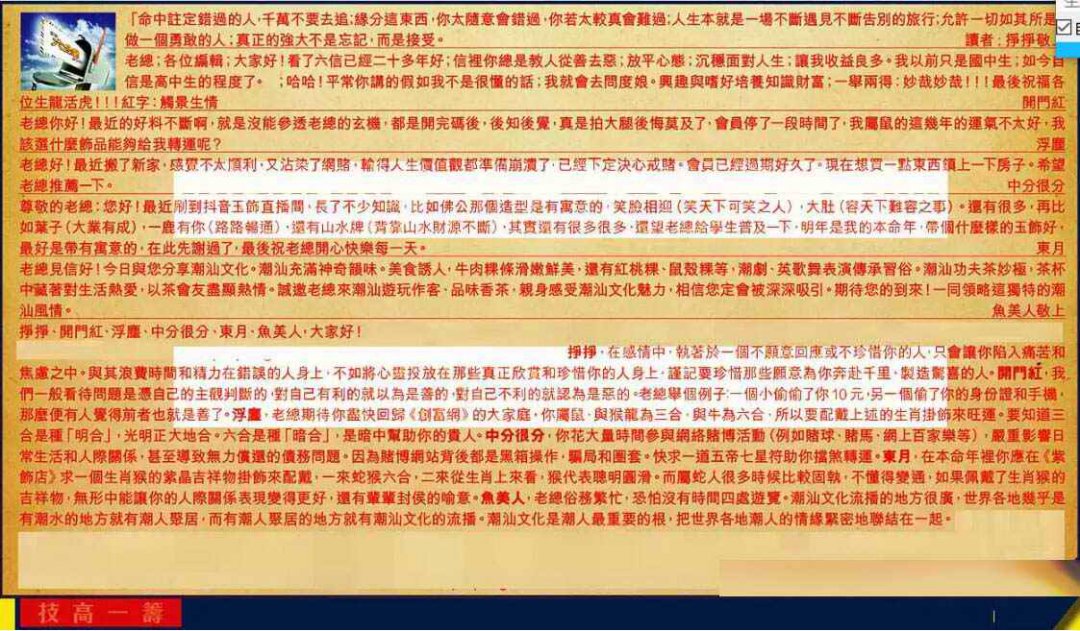 「命中註定錯過的人，千萬不要去追；緣分這東西，你太隨意會錯過，你若太較真會難過；人生本就是一場不斷遇見不斷告別的旅行；允許一切如其所是
做一個勇敢的人；真正的強大不是忘記，而是接受。 讀者：掙掙敬上
老總；各位編輯；大家好！看了六信已經二十多年好；信裡你總是教人從善去惡；放平心態；沉穩面對人生；讓我收益良多。我以前只是國中生；如今自
信是高中生的程度了。 ；哈哈！平常你講的假如我不是很懂的話；我就會去問度娘。興趣與嗜好培養知識財富；一舉兩得：妙哉妙哉！！！最後祝福各
位生龍活虎！！！紅字；觸景生情 開門紅
老總你好！最近的好料不斷啊，就是沒能參透老總的玄機，都是開完碼後，後知後覺，真是拍大腿後悔莫及了，會員停了一段時間了，我屬鼠的這幾年的運氣不太好，我
該選什麼飾品能夠給我轉運呢？ 浮塵
老總好！最近搬了新家，感覺不太順利，又沾染了網賭，輸得人生價值觀都準備崩潰了，已經下定決心戒賭。會員已經過期好久了。現在想買一點東西鎮上一下房子。希望
老總推薦一下。 中分很分
尊敬的老總：您好！最近刷到抖音玉飾直播間，長了不少知識，比如佛公那個造型是有寓意的，笑臉相迎（笑天下可笑之人），大肚（容天下難容之事）。還有很多，再比
如葉子（大業有成），一鹿有你（路路暢通），還有山水牌（背靠山水財源不斷），其實還有很多很多，還望老總給學生普及一下，明年是我的本命年，帶個什麼樣的玉飾好，
最好是帶有寓意的，在此先謝過了，最後祝老總開心快樂每一天。 東月
老總見信好！今日與您分享潮汕文化。潮汕充滿神奇韻味。美食誘人，牛肉粿條滑嫩鮮美，還有紅桃粿、鼠殼粿等，潮劇、英歌舞表演傳承習俗。潮汕功夫茶妙極，茶杯
中藏著對生活熱愛，以茶會友盡顯熱情。誠邀老總來潮汕遊玩作客、品味香茶，親身感受潮汕文化魅力，相信您定會被深深吸引。期待您的到來！一同領略這獨特的潮
汕風情。 魚美人敬上
掙掙、開門紅、浮塵、中分很分、東月、魚美人，大家好！
掙掙，在感情中，執著於一個不願意回應或不珍惜你的人，只會讓你陷入痛苦和
焦慮之中。與其浪費時間和精力在錯誤的人身上，不如將心靈投放在那些真正欣賞和珍惜你的人身上，謹記要珍惜那些願意為你奔赴千里，製造驚喜的人。開門紅，我
們一般看待問題是憑自己的主觀判斷的，對自己有利的就以為是善的，對自己不利的就認為是惡的。老總舉個例子：一個小偷偷了你10元，另一個偷了你的身份證和手機，
那麼便有人覺得前者也就是善了。浮塵，老總期待你盡快回歸《創富網》的大家庭，你屬鼠，與猴龍為三合，與牛為六合，所以要配戴上述的生肖掛飾來旺運。要知道三
合是種「明合」，光明正大地合。六合是種「暗合」，是暗中幫助你的貴人。中分很分，你花大量時間參與網絡賭博活動（例如賭球、賭馬、網上百家樂等），嚴重影響日
常生活和人際關係，甚至導致無力償還的債務問題。因為賭博網站背後都是黑箱操作，騙局和圈套。快求一道五帝七星符助你擋煞轉運。東月，在本命年裡你應在《紫
飾店》求一個生肖猴的紫晶吉祥物掛飾來配戴，一來蛇猴六合，二來從生肖上來看，猴代表聰明圓滑。而屬蛇人很多時候比較固執，不懂得變通，如果佩戴了生肖猴的
吉祥物，無形中能讓你的人際關係表現變得更好，還有輩輩封侯的喻意。魚美人，老總俗務繁忙，恐怕沒有時間四處遊覽。潮汕文化流播的地方很廣，世界各地幾乎是
有潮水的地方就有潮人聚居，而有潮人聚居的地方就有潮汕文化的流播。潮汕文化是潮人最重要的根，把世界各地潮人的情緣緊密地聯結在一起。
技高一籌